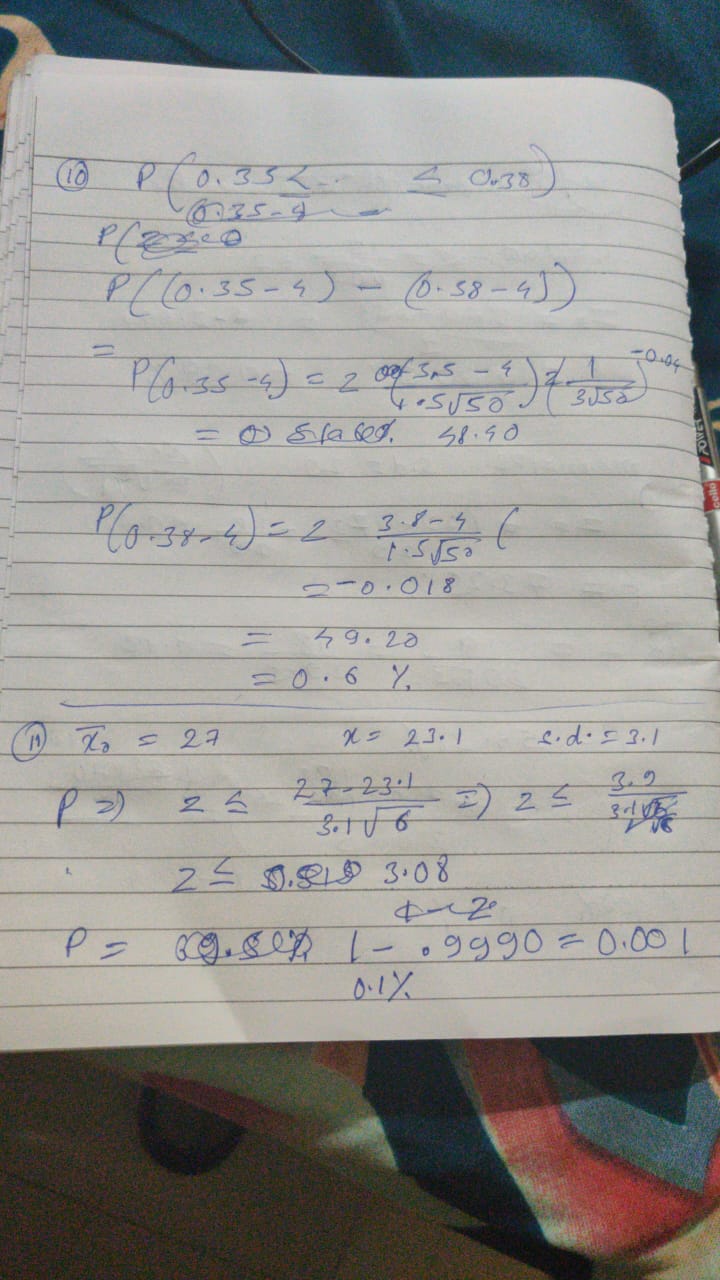 (10) P ( 0.35 ≤ .. ≤ 0.38 )
(0.35-4
P(
P((0.35-4) - (0.38-4))
=
P(0.35-4) = z (3.5-4 / 1.5√50) z (1 / 3√50) -0.04
= 48.40
P(0.38-4) = z 3.8-4 / 1.5√50 (
= -0.018
= 49.20
= 0.6 %
(11) x̄₀ = 27 x = 23.1 s.d. = 3.1
P ⇒ z ≤ 27-23.1 / 3.1√6 ⇒ z ≤ 3.9 /
z ≤ 3.08
P = 1 - .9990 = 0.001
0.1%
cello